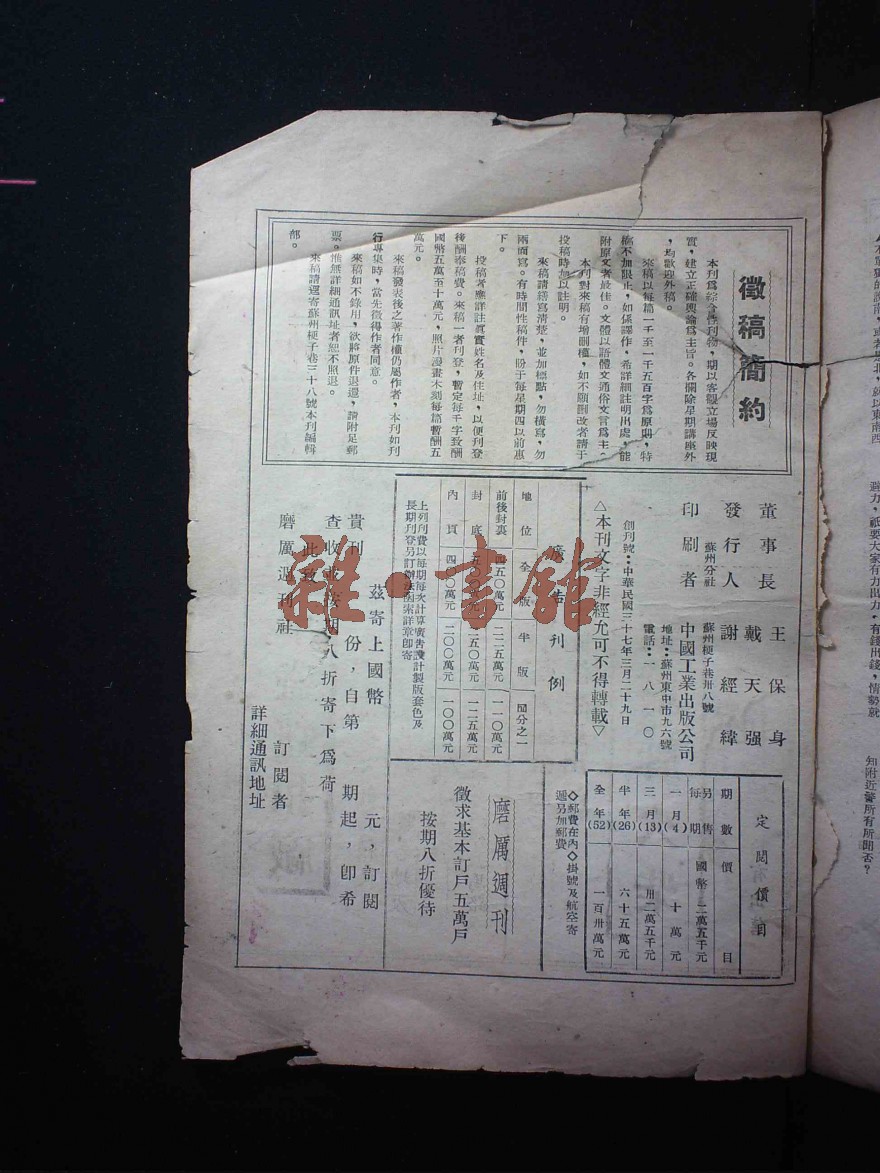 徵稿簡約
本刊爲綜合性刊物，期以客觀立場反映現
實，建立正確輿論爲主旨。各欄除星期講座外
，均歡迎外稿。
來稿以每篇一千至一千五百字爲原則，特
稿不加限止，如係譯作，希詳細註明出處，能
附原文者最佳。文體以語體文通俗文言爲主。
本刊對來稿有增刪權，如不願刪改者請于
投稿時加以註明。
來稿請繕寫清楚，並加標點，勿橫寫，勿
兩面寫。有時間性稿件，盼于每星期四以前惠
下。
投稿者應詳註眞實姓名及住址，以便刊登
後酬奉稿費。來稿一者刊登，暫定每千字致酬
國幣五萬至十萬元，照片漫畫木刻每篇暫酬五
萬元。
來稿發表後之著作權仍屬作者，本刊如刊
行專集時，當先徵得作者同意。
來稿如不錄用，欲將原件退還，請附足郵
票。惟無詳細通訊址者恕不照退。
來稿請逕寄蘇州梗子巷三十八號本刊編輯
部。
董事長 王保身
發行人 戴天强
蘇州分社 蘇州梗子巷卅八號
印刷者 謝經緯
中國工業出版公司
地址：蘇州東中市九六號
電話：一八一〇
創刊號：中華民國三十七年三月二十九日
△本刊文字非經允可不得轉載▽
廣告刊例
地位 全版 半版 四分之一
前後封裏 四五〇萬元 二二五萬元 一一〇萬元
封底 五〇〇萬元 二五〇萬元 一二五萬元
內頁 四〇〇萬元 二〇〇萬元 一〇〇萬元
上列刊費以每期每次計算廣告設計製版套色及
長期刊登另訂辦法函索詳章即寄
定閱價目
期數 價目
另售每期 國幣二萬五千元
一月(4) 十萬元
三月(13) 卅二萬五千元
半年(26) 六十五萬元
全年(52) 一百卅萬元
◇郵費在內◇掛號及航空寄
遞另加郵費
磨厲週刊
徵求基本訂戶五萬戶
按期八折優待
茲寄上國幣 元，訂閱
貴刊 份，自第 期起，卽希
查收並按期八折寄下爲荷
此致
磨厲週刊社
訂閱者
詳細通訊地址
雜·書館
避力，祇要大家有力出力，有錢出錢，情勢就
知附近警所有所聞否？